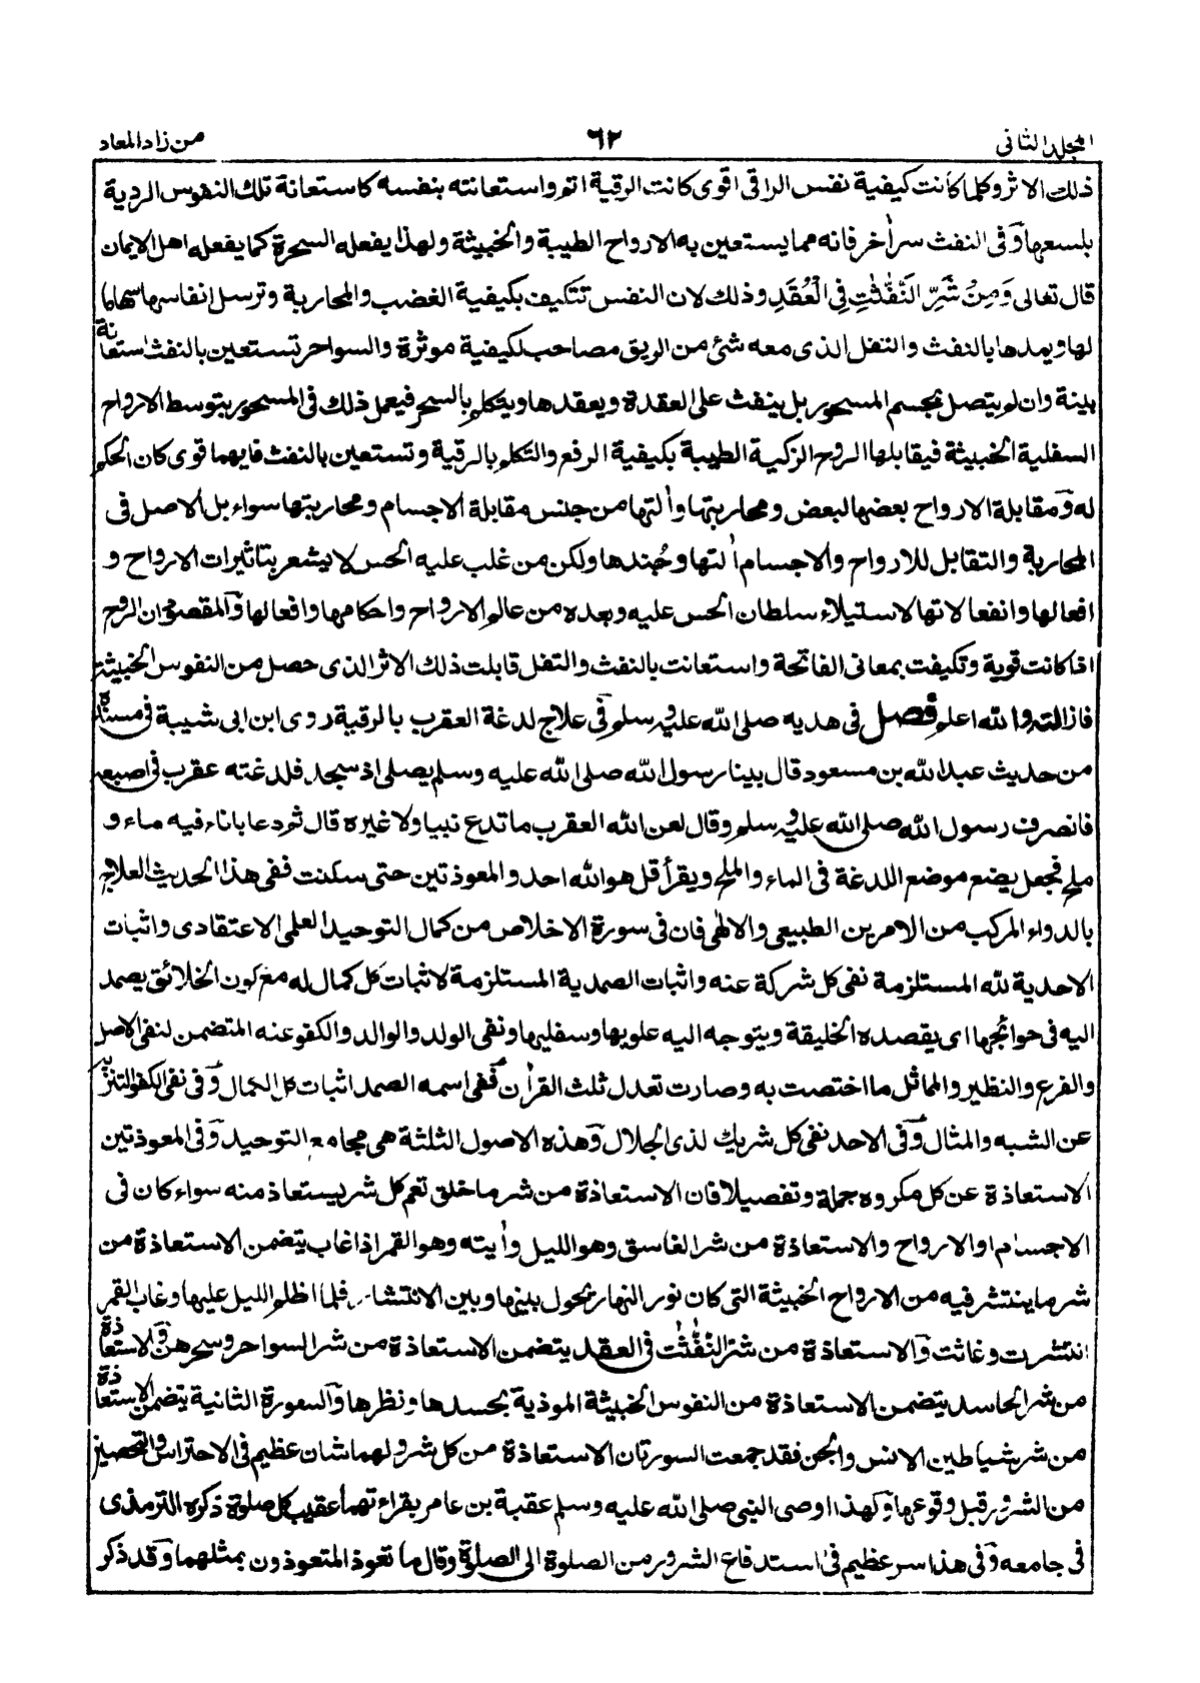 المجلد الثانى
٦٢
من زاد المعاد
ذلك الاثر وكلما كانت كيفية نفس الراقى اقوى كانت الرقية اتم واستعانته بنفسه كاستعانة تلك النفوس الردية
بلسعها وفى النفث سر أخر فانه مما يستعين به الارواح الطيبة والخبيثة ولهذا يفعله السحرة كما يفعله اهل الايمان
قال تعالى وَمِنْ شَرِّ النَّفّٰثٰتِ فِى الْعُقَدِ وذلك لان النفس تتكيف بكيفية الغضب والمحاربة وترسل انفاسها سهاما
لها ويمدها بالنفث والتفل الذى معه شئ من الريق مصاحب لكيفية موثرة والسواحر تستعين بالنفث استعانة
بينة وان لم يتصل بجسم المسحور بل ينفث على العقدة ويعقدها ويتكلم بالسحر فيعمل ذلك فى المسحور بتوسط الارواح
السفلية الخبيثة فيقابلها الروح الزكية الطيبة بكيفية الرفع والتكلم بالرقية وتستعين بالنفث فايهما قوى كان الحكم
له ومقابلة الارواح بعضها لبعض ومحاربتها وألتها من جنس مقابلة الاجسام ومحاربتها سواء بل الاصل فى
المحاربة والتقابل للارواح والاجسام ألتها وجُندها ولكن من غلب عليه الحس لا يشعر بتاثيرات الارواح و
افعالها وانفعالاتها لاستيلاء سلطان الحس عليه وبعده من عالم الارواح واحكامها وافعالها والمقصود ان الروح
اذا كانت قوية وتكيفت بمعانى الفاتحة واستعانت بالنفث والتفل قابلت ذلك الاثر الذى حصل من النفوس الخبيثة
فازالته والله اعلم فصل فى هديه صلى الله عليه وسلم فى علاج لدغة العقرب بالرقية روى ابن ابى شيبة فى مسنده
من حديث عبد الله بن مسعود قال بينا رسول الله صلى الله عليه وسلم يصلى اذ سجد فلدغته عقرب فى اصبعه
فانصرف رسول الله صلى الله عليه وسلم وقال لعن الله العقرب ما تدع نبيا ولا غيره قال ثم دعا باناء فيه ماء و
ملح فجعل يضع موضع اللدغة فى الماء والملح ويقرأ قل هو الله احد والمعوذتين حتى سكنت ففى هذا الحديث العلاج
بالدواء المركب من الامرين الطبيعى والالٰهى فان فى سورة الاخلاص من كمال التوحيد العلمى الاعتقادى واثبات
الاحدية لله المستلزمة نفى كل شركة عنه واثبات الصمدية المستلزمة لاثبات كل كمال له مع كون الخلائق يصمد
اليه فى حوائجها اى يقصده الخليقة ويتوجه اليه علويها وسفليها ونفى الولد والوالد والكفو عنه المتضمن لنفى الاصل
والفرع والنظير والمماثل ما اختصت به وصارت تعدل ثلث القرأن ففى اسمه الصمد اثبات كل الكمال وفى نفى الكفو التنزيه
عن الشبه والمثال وفى الاحد نفى كل شريك لذى الجلال وهذه الاصول الثلثة هى مجامع التوحيد وفى المعوذتين
الاستعاذة عن كل مكروه جملة وتفصيلا فان الاستعاذة من شر ما خلق تعم كل شر يستعاذ منه سواء كان فى
الاجسام او الارواح والاستعاذة من شر الغاسق وهو الليل وأيته وهو القمر اذا غاب يتضمن الاستعاذة من
شر ما ينتشر فيه من الارواح الخبيثة التى كان نور النهار يحول بينها وبين الانتشار فلما اظلم الليل عليها وغاب القمر
انتشرت وغاثت والاستعاذة من شر النفّٰثٰت فى العقد يتضمن الاستعاذة من شر السواحر وسحرهن والاستعاذة
من شر الحاسد يتضمن الاستعاذة من النفوس الخبيثة الموذية بحسدها ونظرها والسورة الثانية يتضمن الاستعاذة
من شر شياطين الانس والجن فقد جمعت السورتان الاستعاذة من كل شر ولهما شان عظيم فى الاحتراس والتحصين
من الشرور قبل وقوعها ولهذا اوصى النبى صلى الله عليه وسلم عقبة بن عامر بقراءتهما عقيب كل صلوة ذكره الترمذى
فى جامعه وفى هذا سر عظيم فى استدفاع الشرور من الصلوة الى الصلوة وقال ما تعوذ المتعوذون بمثلهما وقد ذكر